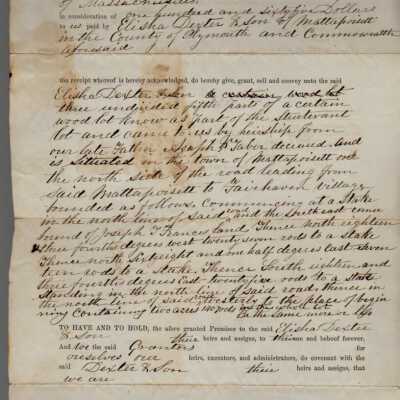 of Massachusetts
in consideration of one hundred and sixty five Dollars
to us paid by Elisha Dexter & Son of Mattapoisett
in the County of Plymouth and Commonwealth
aforesaid
the receipt whereof is hereby acknowledged, do hereby give, grant, sell and convey unto the said
Elisha Dexter & Son a certain wood lot
three undivided fifth parts of a certain
wood lot know as part of the Sturtevant
lot and came to us by heirship from
our late Father Joseph Taber deceased. And
is situated in the town of Mattapoisett on
the north side of the road leading from
said Mattapoisett to Fairhaven Village
bounded as follows. Commencing at a Stake
in the north line of Said road and the South east corner
bound of Joseph T Francis land Thence north eighteen
& three fourths degrees west twenty seven rods to a stake
Thence north Sixty eight and one half degrees east Seven
teen rods to a Stake. Thence South eighteen and
three fourths degrees East Twenty five rods to a State
Standing in the north line of said road, thence in
the north line of said road westerly to the place of begin
ning Containing two acres rods
be the same more or less
TO HAVE AND TO HOLD, the above granted Premises to the said Elisha Dexter
& Son their heirs and assigns, to their use and behoof forever,
And we the said Grantors for
ourselves our heirs, executors, and administrators, do covenant with the
said Dexter & Son their heirs and assigns, that
we are